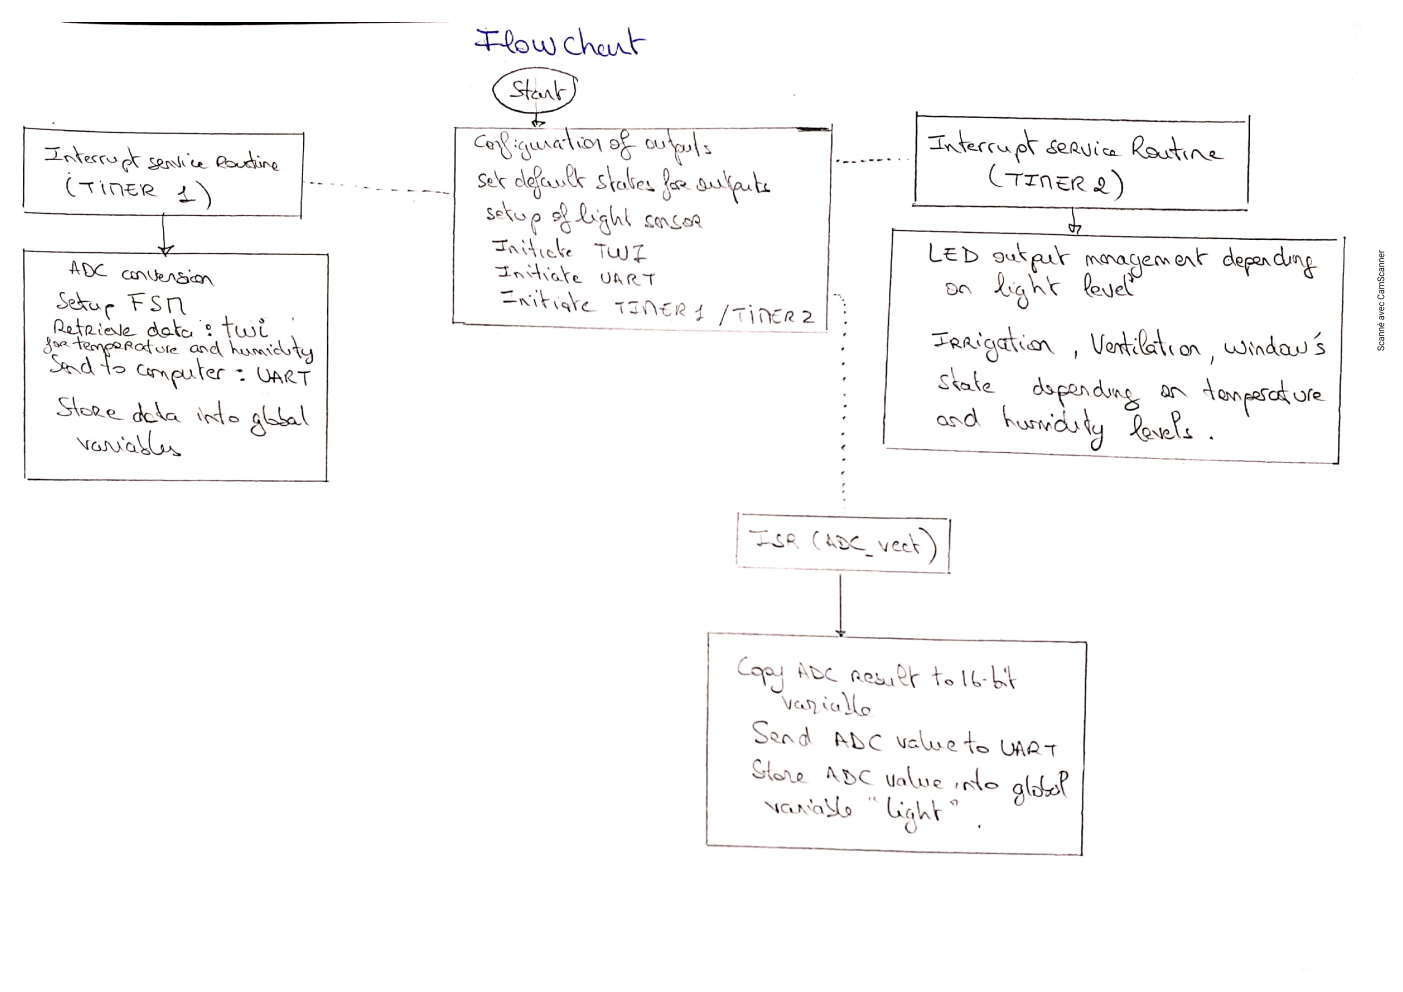 Flow Chart
Start
Configuration of outputs
set default states for outputs
setup of light sensor
Initiate TWI
Initiate UART
Initiate TIMER1 / TIMER2
Interrupt service Routine
(TIMER 1)
ADC conversion
Setup FSM
Retrieve data : twi
for temperature and humidity
Send to computer : UART
Store data into global
variables
Interrupt service Routine
(TIMER 2)
LED output management depending
on light level
Irrigation, Ventilation, window's
state depending on temperature
and humidity levels.
ISR (ADC_vect)
Copy ADC result to 16-bit
variable
Send ADC value to UART
Store ADC value into global
variable "light".
Scanné avec CamScanner